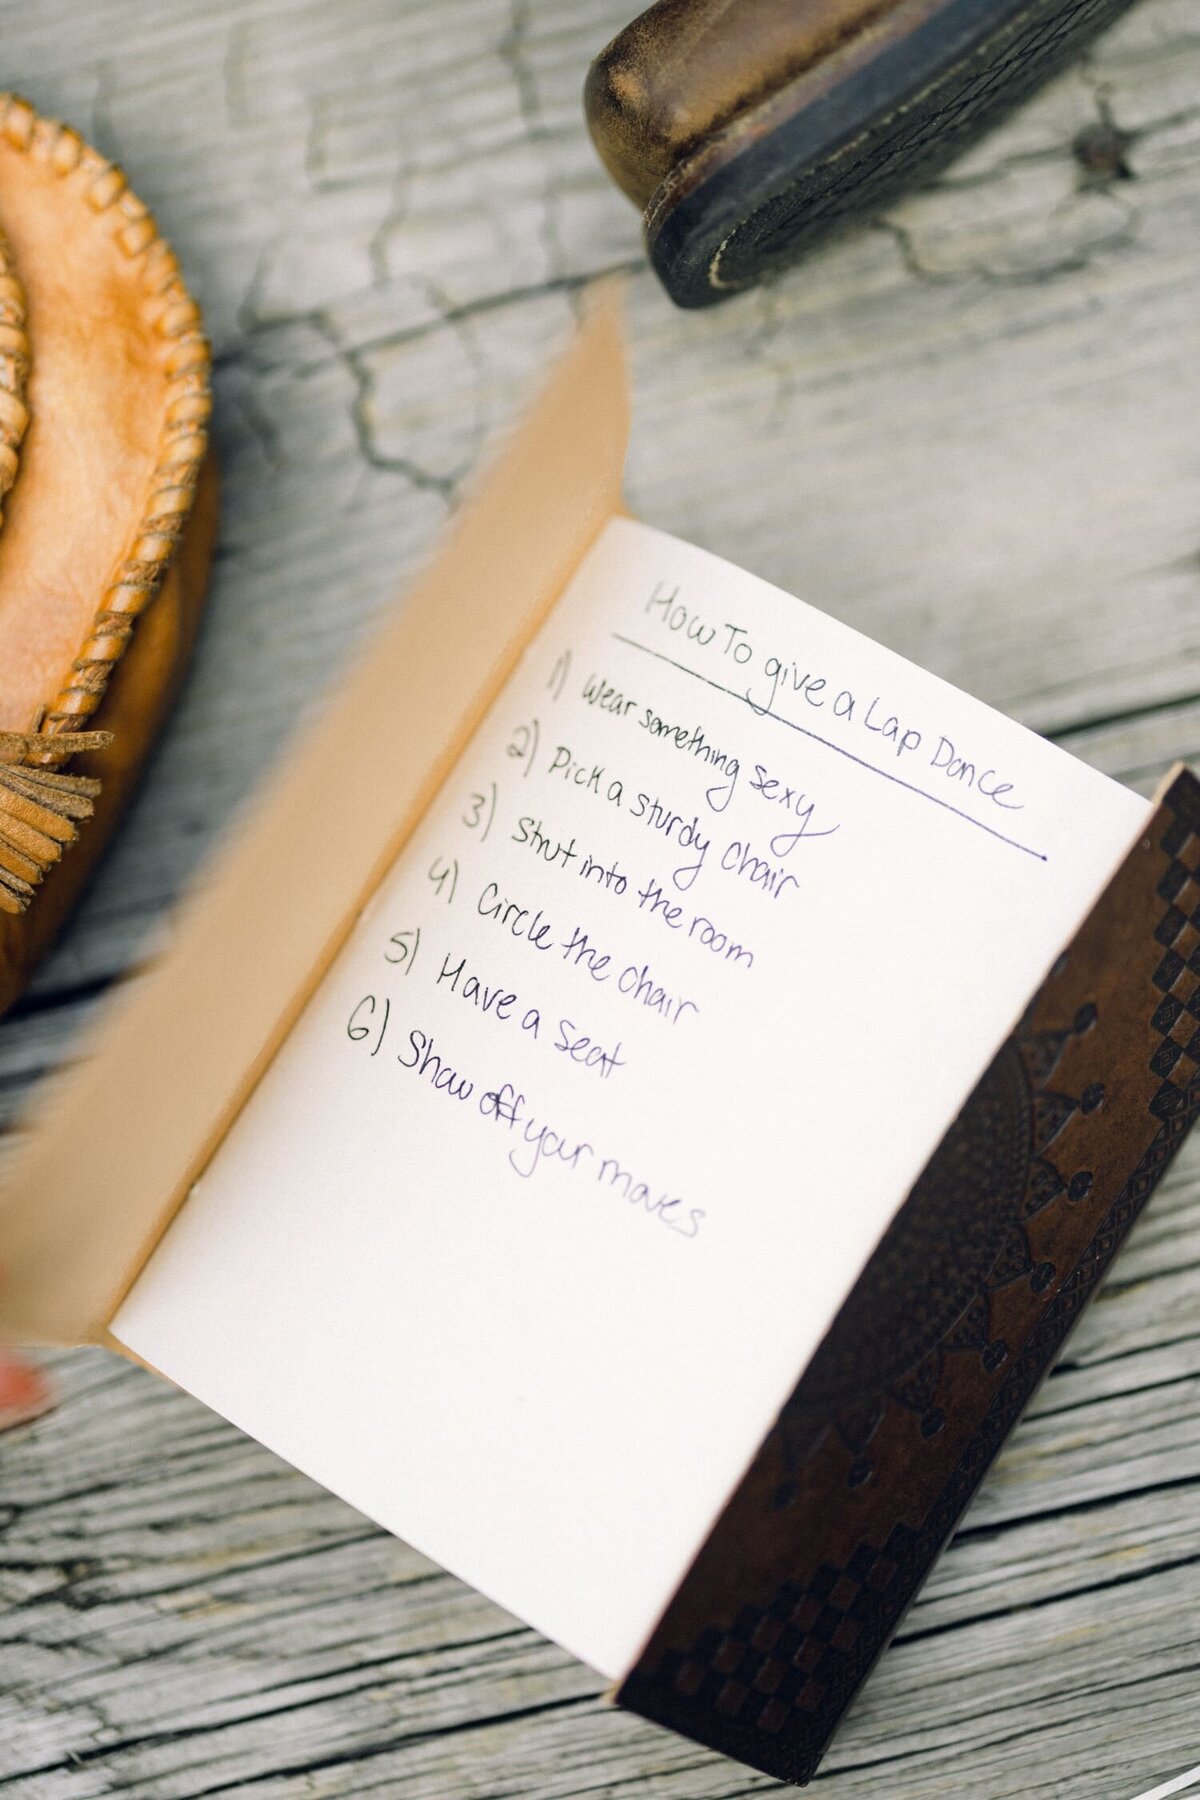 How To give a Lap Dance
1) Wear something sexy
2) Pick a sturdy chair
3) Strut into the room
4) Circle the chair
5) Have a seat
6) Show off your moves